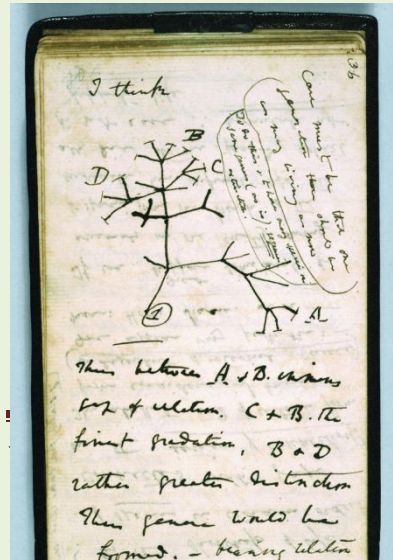 36
I think
B
C
D
A
1
Case must be that one
generation then should be
as many living as now
To do this & to have many species in
same genus (as is) requires
extinction.
Thus between A & B. immens
gap of relation. C & B. the
finest gradation, B & D
rather greater distinction
Thus genera would be
formed. — bearing relation